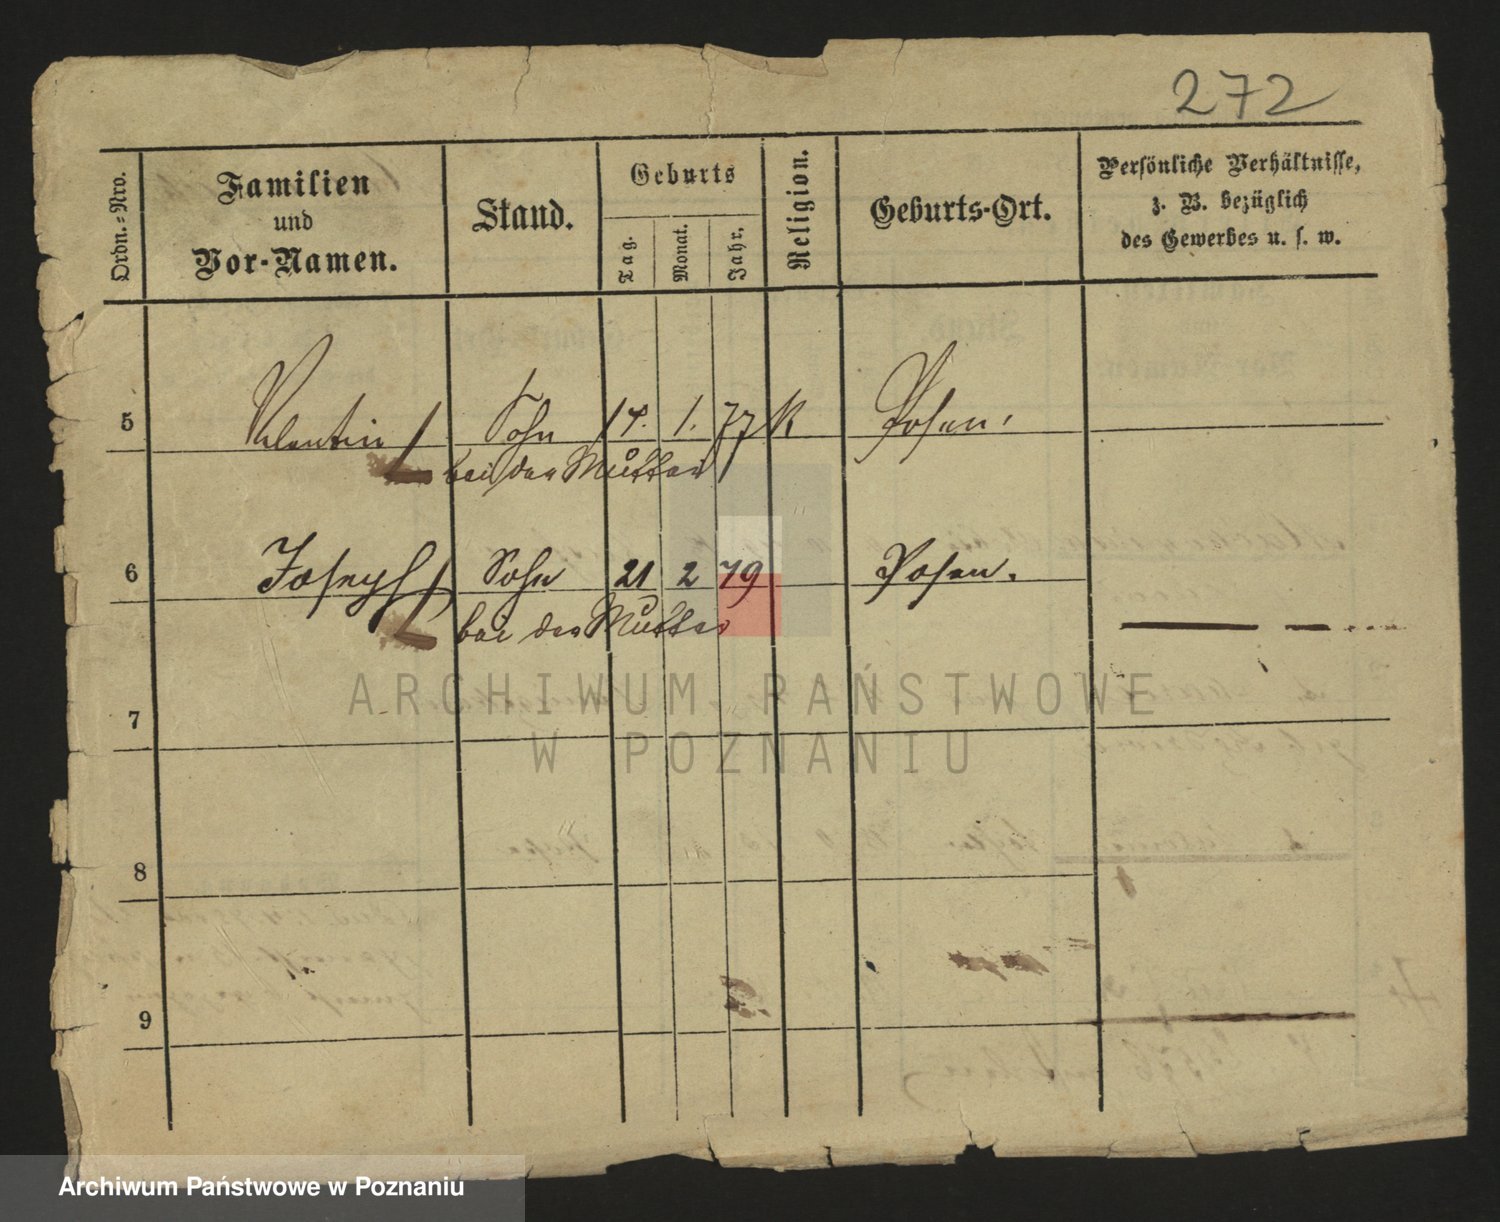 272
Ordn.-Nro.
Familien
und
Vor-Namen.
Stand.
Geburts
Tag.
Monat.
Jahr.
Religion.
Geburts-Ort.
Persönliche Verhältnisse,
z. B. bezüglich
des Gewerbes u. s. w.
5 Valentin Sohn 14. 1. 77 K Posen.
bei der Mutter
6 Joseph Sohn 21 2 79 Posen.
bei der Mutter
7
8
9
ARCHIWUM PAŃSTWOWE
W POZNANIU
Archiwum Państwowe w Poznaniu